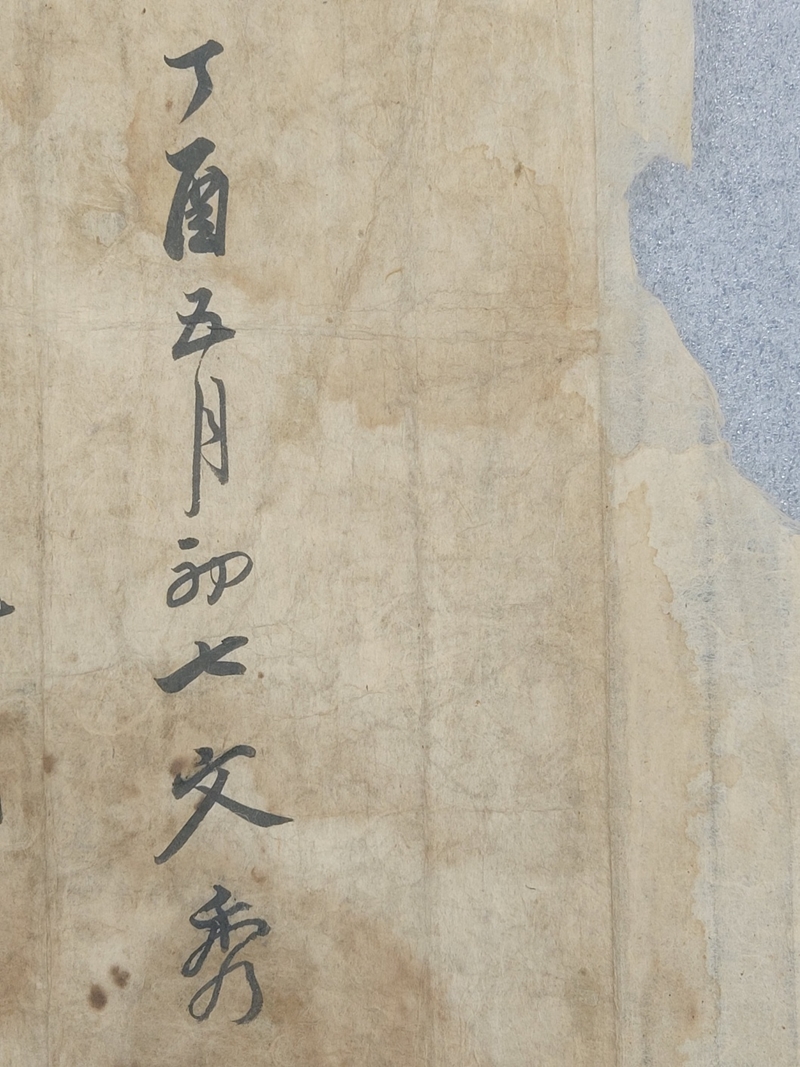 丁酉五月初七文秀